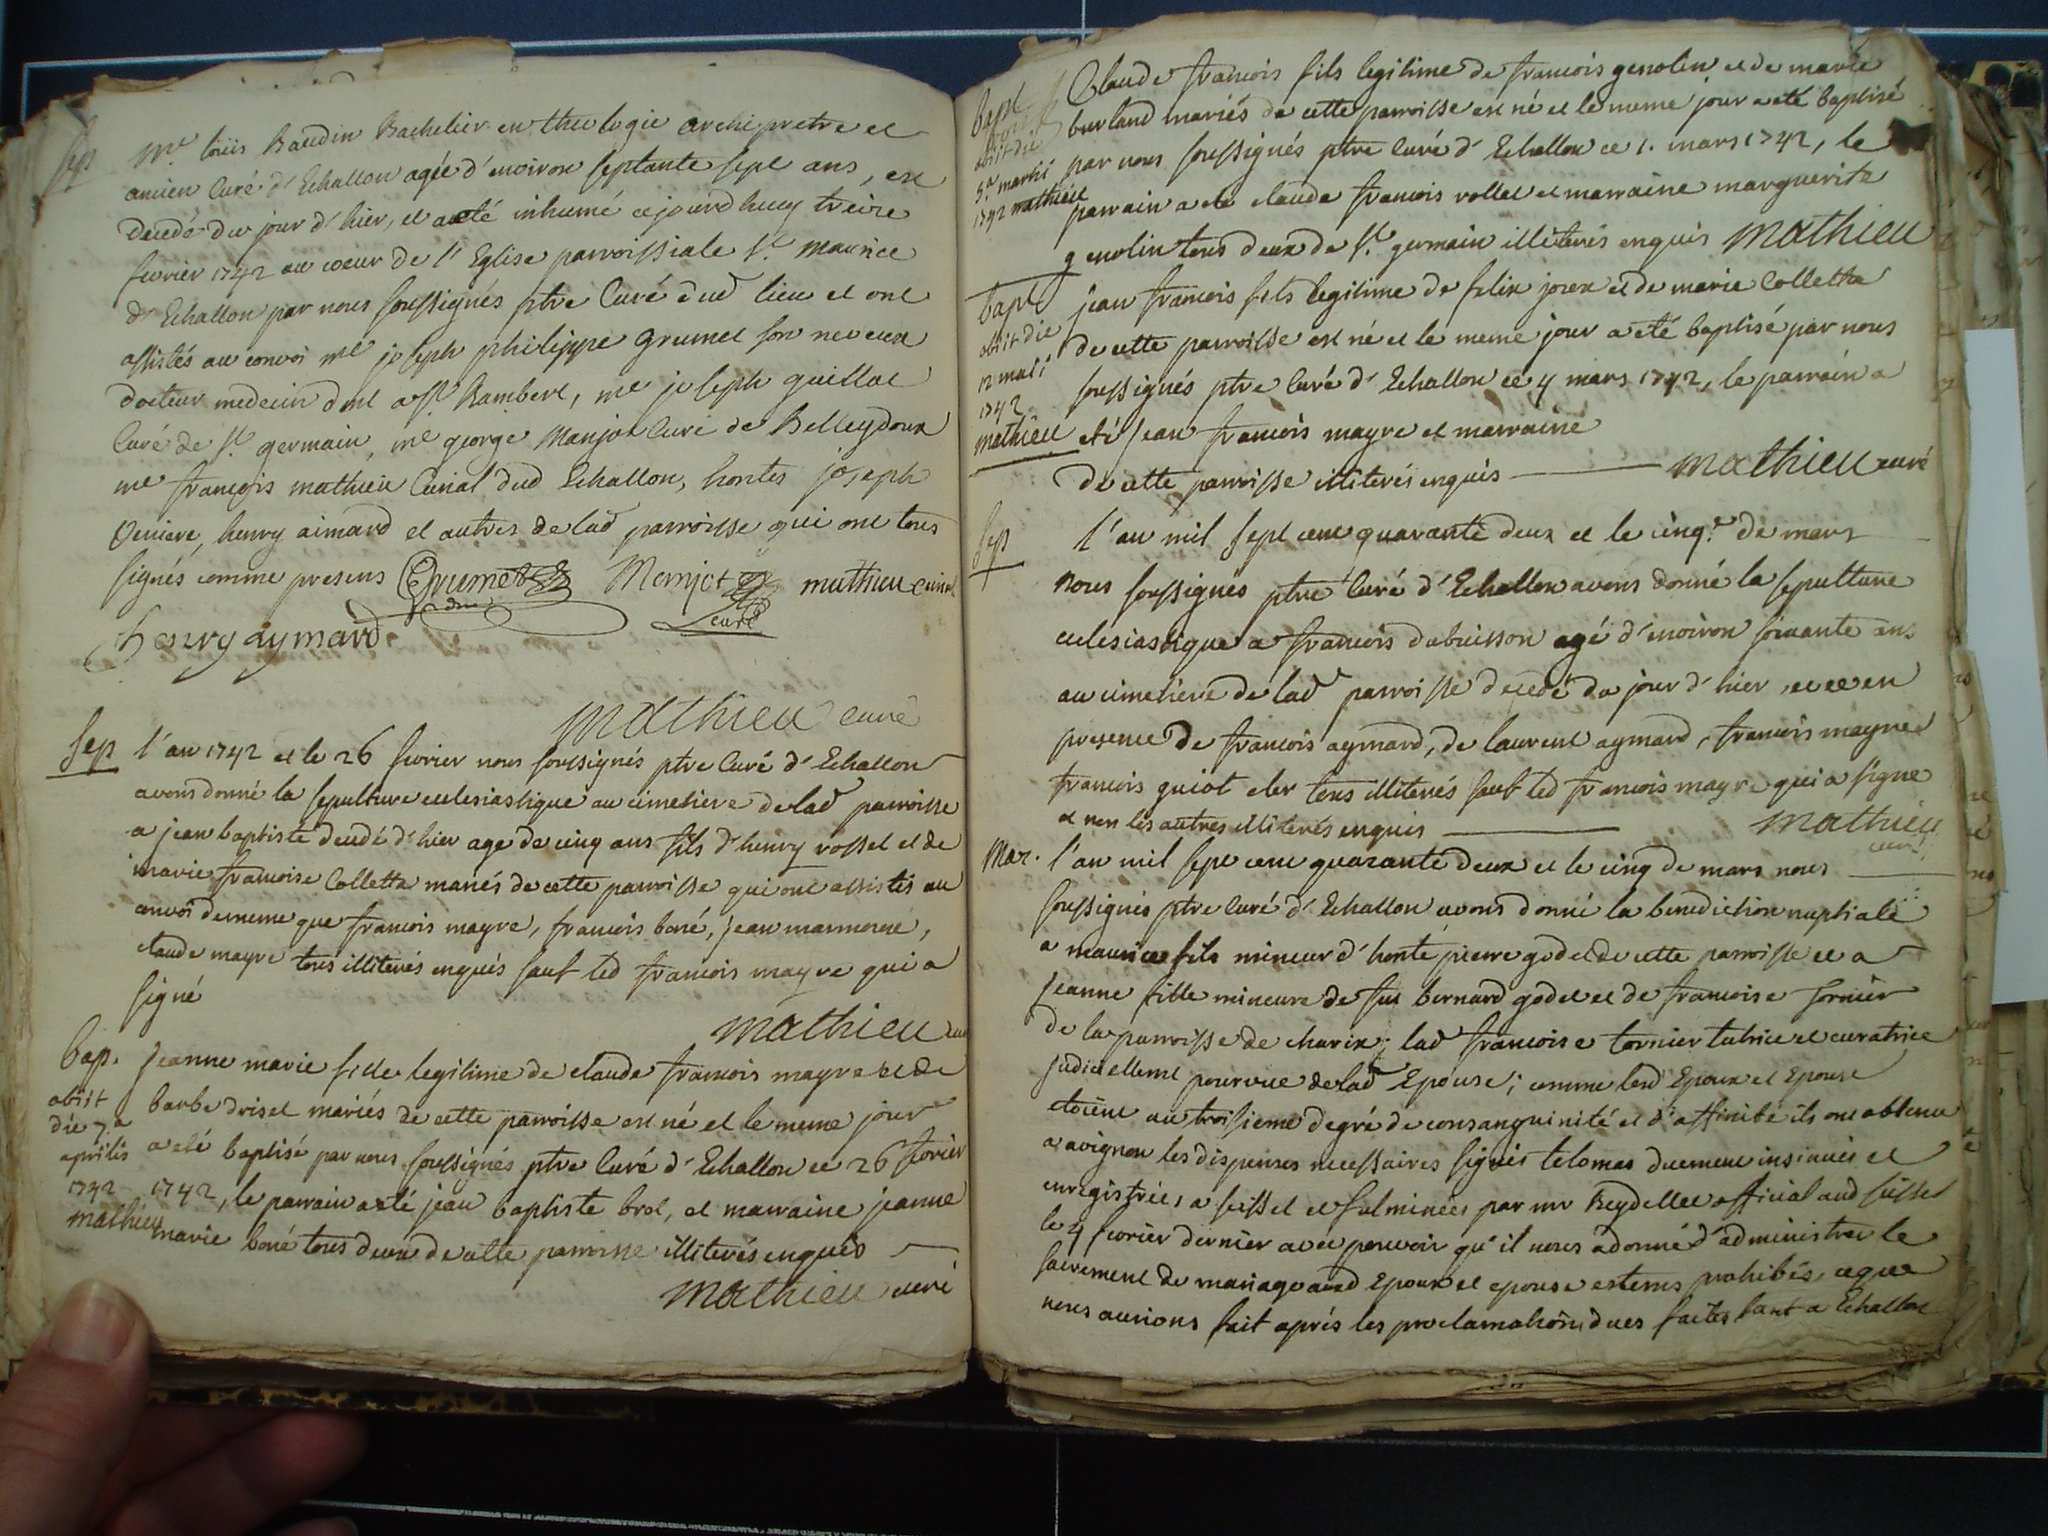 Sep
Mre loüis Baudin Bachelier en theologie archipretre et
ancien Curé d'Echallon agée d'environ septante sept ans, est
decedé du jour d'hier, et a eté inhumé ce jourd huy treize
fevrier 1742 au coeur de l'Eglise parroissiale St. Maurice
d'Echallon par nous soussignés ptre Curé dud lieu et ont
assistés au convoi me joseph philippe grumet son neveux
docteur medecin de St Rambert, me joseph guillot
Curé de St. germain, me george Manjot Curé de Belleydoux
me françois mathieu Curial dud Echallon, hontes joseph
henry aimard et autres de lad parroisse qui ont tous
signés comme presens Grumet Manjot curé mathieu curial
henry aymard
Mathieu curé
Sep l'an 1742 et le 26 fevrier nous soussignés ptre Curé d'Echallon
avons donné la sepulture ecclesiastique au cimetiere de lad parroisse
a jean baptiste decedé d'hier age de cinq ans fils d'henry rossel et de
marie francoise Colletta mariés de cette parroisse qui ont assistés au
convoi de meme que francois mayre, francois boné, jean marmonet,
claude mayre tous illiterés enquis sauf led francois mayre qui a
signé
Mathieu curé
bap. Jeanne marie fille legitime de claude francois mayre et de
barbe driset mariés de cette parroisse est né et le meme jour
a eté baptisé par nous soussignés ptre Curé d'Echallon ce 26 fevrier
1742, le parrain a eté jean baptiste brot, et marraine jeanne
marie boné tous deux de cette parroisse illiterés enquis
obiit
die 7a
aprilis
1742
Mathieu
Mathieu curé
bapt
obiit die
5a martii
1742 mathieu
Claude francois fils legitime de francois genolin et de marie
burland mariés de cette parroisse est né et le meme jour a eté baptisé
par nous soussignés ptre Curé d'Echallon ce 1. mars 1742, le
parrain a eté claude francois rollet et marraine marguerite
genolin tous deux de St. germain illiterés enquis Mathieu
bapt
obiit die
12 maii
1742
mathieu
jean francois fils legitime de felix joren et de marie Colletta
de cette parroisse est né et le meme jour a eté baptisé par nous
soussignés ptre Curé d'Echallon ce 4 mars 1742, le parrain a
eté jean francois mayre et marraine
de cette parroisse illiterés enquis Mathieu curé
Sep
l'an mil sept cent quarante deux et le cinqe de mars
nous soussignés ptre Curé d'Echallon avons donné la sepulture
ecclesiastique a francois dubuisson agé d'environ soixante ans
au cimetiere de lad parroisse decedé du jour d'hier, et ce en
presence de francois aymard, de laurent aymard, francois mayre
francois guiot cler tous illiterés sauf led francois mayre qui a signé
et non les autres illiterés enquis Mathieu
curé
Mar. l'an mil sept cent quarante deux et le cinq de mars nous
soussignés ptre Curé d'Echallon avons donné la benediction nuptiale
a maurice fils mineur d'honte pierre godet de cette parroisse et a
jeanne fille mineure de fut bernard godet et de francoise tornier
de la parroisse de charix; lad francoise tornier tutrice et curatrice
judiciellement pourvue de lad Epouse; comme lesd Epoux et Epouse
etoient au troisieme degré de consanguinité et d'affinité ils ont obtenu
a avignon les dispenses necessaires signés telomas duement insinués et
enregistrées a seissel et fulminées par mr Reydellet official aud seissel
le 4 fevrier dernier avec pouvoir qu'il nous a donné d'administrer le
sacrement de mariage aud Epoux et epouse es tems prohibés, ce que
nous aurions fait aprés les proclamations dues faites tant a Echallon